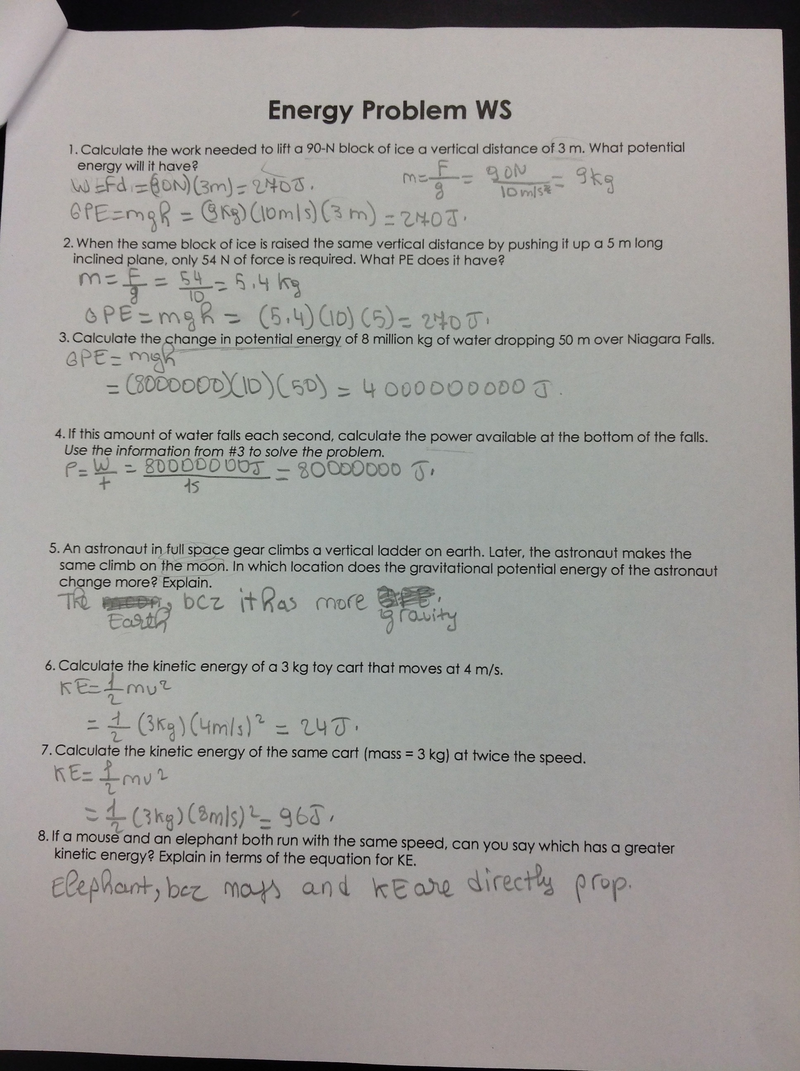 Energy Problem WS
1. Calculate the work needed to lift a 90-N block of ice a vertical distance of 3 m. What potential
energy will it have?
W=Fd=(90N)(3m)=270J.
m=F/g = 90N/10m/s² = 9kg
GPE=mgh = (9kg)(10m/s)(3m) = 270J.
2. When the same block of ice is raised the same vertical distance by pushing it up a 5 m long
inclined plane, only 54 N of force is required. What PE does it have?
m = F/g = 54/10 = 5.4 kg
GPE=mgh = (5.4)(10)(5) = 270J.
3. Calculate the change in potential energy of 8 million kg of water dropping 50 m over Niagara Falls.
GPE= mgh
= (8000000)(10)(50) = 4000000000 J.
4. If this amount of water falls each second, calculate the power available at the bottom of the falls.
Use the information from #3 to solve the problem.
P= W/t = 80000000J/1s = 80000000 J.
5. An astronaut in full space gear climbs a vertical ladder on earth. Later, the astronaut makes the
same climb on the moon. In which location does the gravitational potential energy of the astronaut
change more? Explain.
The Earth, bcz it has more gravity.
6. Calculate the kinetic energy of a 3 kg toy cart that moves at 4 m/s.
KE=1/2 mv²
= 1/2 (3kg)(4m/s)² = 24J.
7. Calculate the kinetic energy of the same cart (mass = 3 kg) at twice the speed.
KE=1/2 mv²
= 1/2 (3kg)(8m/s)² = 96J.
8. If a mouse and an elephant both run with the same speed, can you say which has a greater
kinetic energy? Explain in terms of the equation for KE.
Elephant, bcz mass and KE are directly prop.